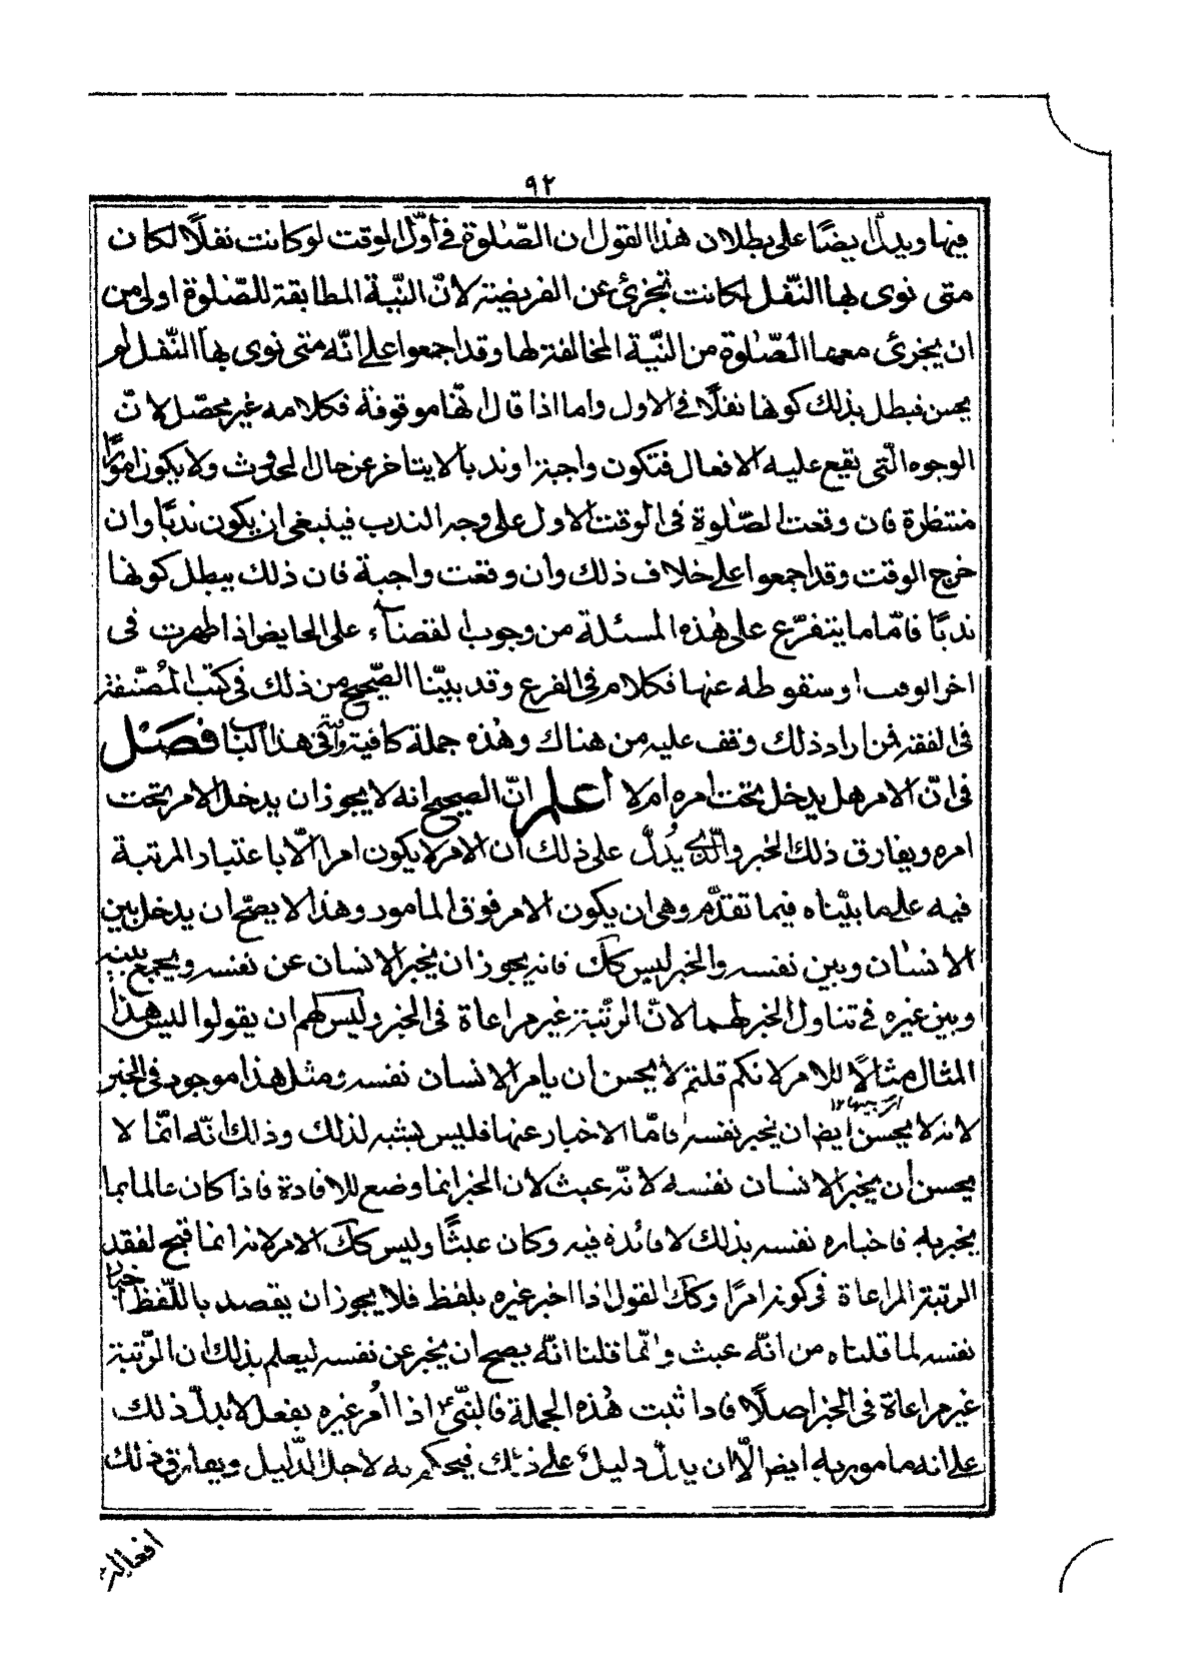 ٩٢
فيها ويدلّ ايضًا على بطلان هذا القول ان الصّلوة في أوّل الوقت لو كانت نفلًا لكان
متى نوى بها النّفل لكانت تجزئ عن الفريضة لانّ النيّة المطابقة للصّلوة اولى من
ان يجزئ معها الصّلوة من النيّة المخالفة لها وقد اجمعوا على انّه متى نوى بها النّفل لم
يحسن فبطل بذلك كونها نفلًا في الاول واما اذا قال انّها موقوفة فكلامه غير محصّل لانّ
الوجوه الّتي يقع عليه الافعال فتكون واجبة او ندبا لا يتاخر عن حال الحدوث ولا يكون امورًا
منتظرة فان وقعت الصّلوة في الوقت الاول على وجه الندب فينبغي ان يكون ندبًا وان
خرج الوقت وقد اجمعوا على خلاف ذلك وان وقعت واجبة فان ذلك يبطل كونها
ندبًا فامّا ما يتفرّع على هذه المسئلة من وجوب القضاء على الحايض اذا طهرت في
اخر الوقت او سقوطه عنها فكلام في الفرع وقد بيّنا الصّحيح من ذلك في كتب المُصنّفة
في الفقه فمن اراد ذلك وقف عليه من هناك وهذه جملة كافية في هذا الباب فصل
في انّ الامر هل يدخل تحت امره ام لا اعلم انّ الصحيح انه لا يجوز ان يدخل الامر تحت
امره ويفارق ذلك الخبر والّذي يدُلّ على ذلك أن الامر لا يكون امرا الّا باعتبار المرتبة
فيه على ما بيّناه فيما تقدّم وهى ان يكون الامر فوق المامور وهذا لا يصحّ ان يدخل بين
الانسان وبين نفسه والخبر ليس كك فانه يجوز ان يخبر الانسان عن نفسه ويجمع بينه
وبين غيره في تناول الخبر لهما لانّ الرتبة غير مراعاة في الخبر وليس لهم ان يقولوا ليس هذا
المثال مثالًا للامر لانكم قلتم لا يحسن ان يامر الانسان نفسه ومثل هذا موجود في الخبر
لانه لا يحسن ايضا ان يخبر نفسه فامّا الاخبار عنها فليس يشبه لذلك وذلك انّه انّما لا
يحسن أن يخبر الانسان نفسه لانّه عبث لان الخبر انما وضع للافادة فاذا كان عالما بما
يخبر به فاخباره نفسه بذلك لا فائدة فيه وكان عبثًا وليس كك الامر لانه انما قبح لفقد
الرتبة المراعاة في كونه امرًا وكك القول اذا اخبر غيره بلفظ فلا يجوز ان يقصد باللّفظ اخبار
نفسه لما قلناه من انّه عبث وانّما قلنا انّه يصح ان يخبر عن نفسه ليعلم بذلك ان الرّتبة
غير مراعاة في الخبر اصلًا فاذا ثبت هذه الجملة فالنبيّ ع اذا اُمر غيره بفعل لا يدلّ ذلك
على انه مامور به ايضا الّا ان يدلّ دليل على ذلك فيحكم به لاجل الدّليل ويفارق ذلك
افعاله